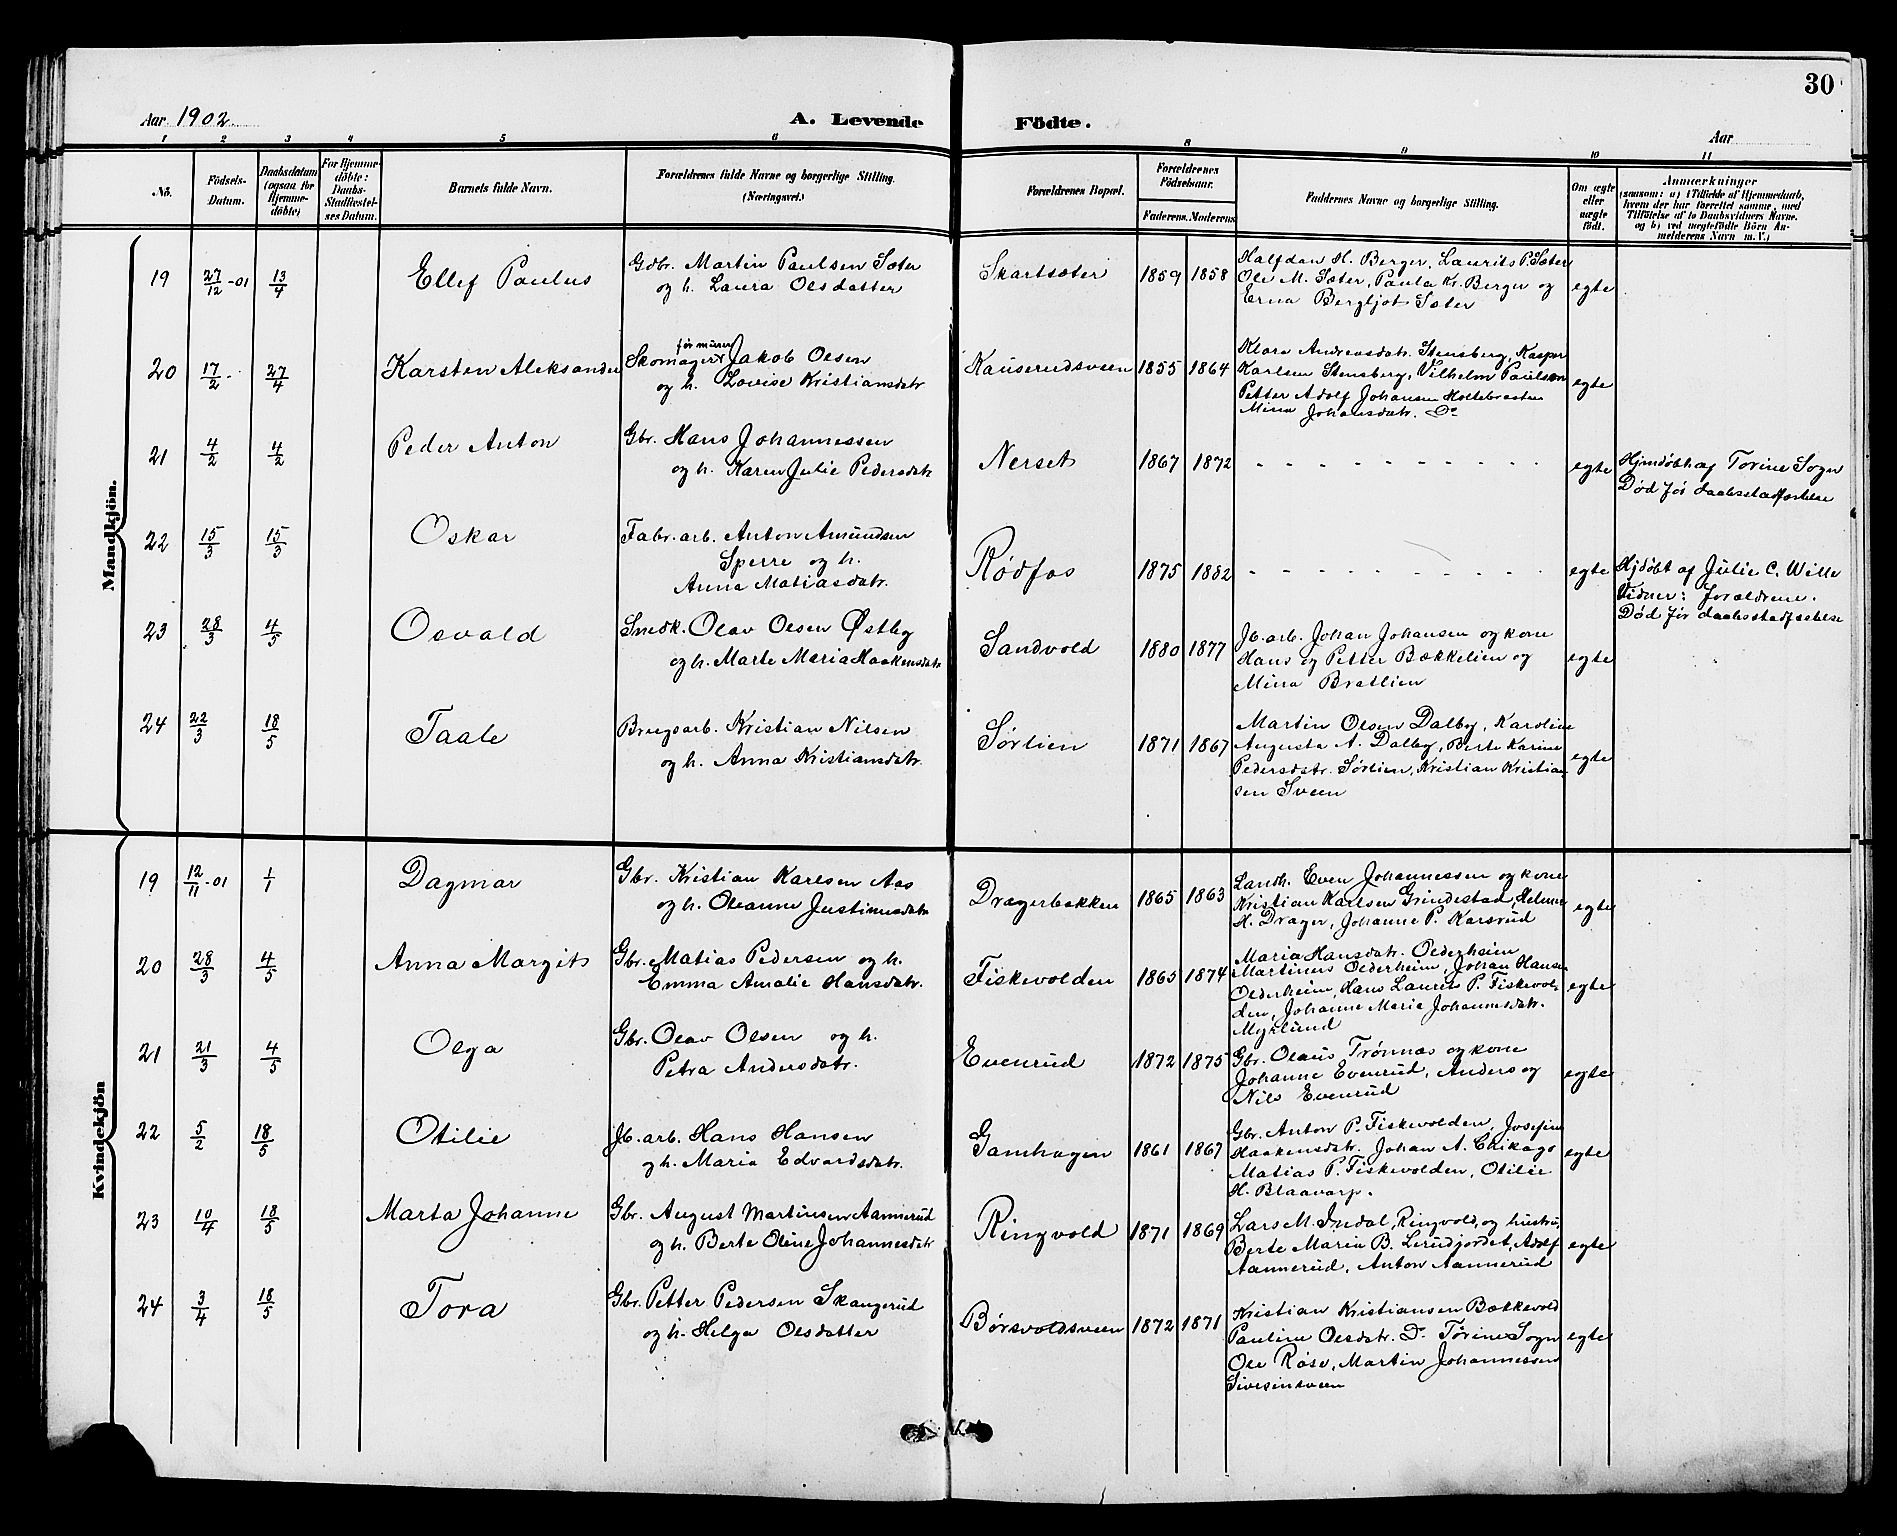 30
Aar 1902
A. Levende Födte.
Aar
1 2 3 4 5 6 8 9 10 11
No.
Födsels-Datum.
Daabsdatum (ogsaa for Hjemme-döbte)
For Hjemme-döbte: Daabs-Stadfæstel-ses Datum.
Barnets fulde Navn.
Forældrenes fulde Navne og borgerlige Stilling.
(Næringsvei.)
Forældrenes Bopæl.
Forældrenes Födselsaar.
Faderens. Moderens.
Faddernes Navne og borgerlige Stilling.
Om ægte eller uægte födt.
Anmærkninger
(saasom: a) i Tilfælde af Hjemmedaab,
hvem der har forrettet samme, med
Tilföielse af to Daabsvidners Navne.
og b) ved uægtefödte Börn An-
melderens Navn m. V.)
Mandkjön.
19 27/12-01 13/4 Ellef Paulus
Gdbr. Martin Paulsen Sæter
og h. Laura Olsdatter
Skartsæter 1859 1858
Halfdan H. Berger, Laurits P. Sæter
Ole M. Sæter, Paula Kr. Berger og
Erna Bergljot Sæter
egte
20 17/2 27/4 Karsten Aleksander
før murer
Skomager Jakob Olsen
og h. Lovise Kristiansdatr
Kauserudsveen 1855 1864
Klara Andreasdatr. Stensberg, Kaspar
Karlsen Stensberg, Vilhelm Paulsen
Petter Adolf Johansen Holtebraaten
Mina Johansdatr. Do
egte
21 4/2 4/2 Peder Anton
Gbr. Hans Johannessen
og h. Karen Julie Pedersdatr
Nerset 1867 1872
- - - - - - - - - -
egte
Hjmdøbt af Torine Sogn
Død før daabsstadfæstelse
22 15/3 15/3 Oskar
Fabr. arb. Anton Amundsen
Sperre og h.
Anna Matiasdatr.
Rødfos 1875 1882
- - - - - - - - - -
egte
Hjdøbt af Julie C. Wille
Vidner: forældrene.
Død før daabsstadfæstelse
23 28/3 4/5 Osvald
Snedk. Olav Olsen Østby
og h. Marte Maria Haakensdatr
Sandvold 1880 1877
Jb. arb. Johan Johansen og kone
Hans og Petter Bækkelien og
Mina Bratlien
egte
24 22/3 18/5 Taale
Brugsarb. Kristian Nilsen
og h. Anna Kristiansdatr.
Sørlien 1871 1867
Martin Olsen Dalby, Karoline
Augusta A. Dalby, Berte Karine
Pedersdatr. Sørlien, Kristian Kristian
sen Sveen
egte
Kvindekjön
19 12/11-01 1/1 Dagmar
Gbr. Kristian Karlsen Aas
og h. Oleanne Justinusdatr
Drægerbakken 1865 1863
Landh. Even Johannessen og kone
Kristian Karlsen Grindestad, Helmer
H. Dræger, Johanne P. Karsrud
egte
20 28/3 4/5 Anna Margit
Gbr. Matias Pedersen og h.
Emma Amalie Hansdatr.
Fiskevolden 1865 1874
Maria Hansdatr. Olderheim
Martinus Olderheim, Johan Hansen
Olderheim, Hans Laurits P. Fiskevol-
den, Johanne Maria Johannesdatr.
Myrlund
egte
21 21/3 4/5 Olga
Gbr. Olav Olsen og h.
Petra Andersdatr.
Evenrud 1872 1875
Gbr. Olaus Trønnæs og kone
Johanne Evenrud, Anders og
Nils Evenrud
egte
22 5/2 18/5 Otilie
Jb. arb. Hans Hansen
og h. Maria Edvardsdatr.
Gamhagen 1861 1867
Gbr. Anton P. Fiskevolden, Josefine
Haakensdatr. Johan A. Chikago
Matias P. Fiskevolden, Otilie
H. Blaavarp.
egte
23 10/4 18/5 Marta Johanne
Gbr. August Martinsen Aannerud
og h. Berte Oline Johannesdatr
Ringvold 1871 1869
Lars M. Indal, Ringvold, og hustru,
Berte Maria B. Lerudjordet, Adolf
Aannerud, Anton Aannerud
egte
24 3/4 18/5 Tora
Gbr. Petter Pedersen Skangerud
og h. Helga Olsdatter
Børsvoldsveen 1872 1871
Kristian Kristiansen Bækkevold
Pauline Olsdatr. Do Torine Sogn
Ole Røse, Martin Johannessen
Sivesinsveen
egte